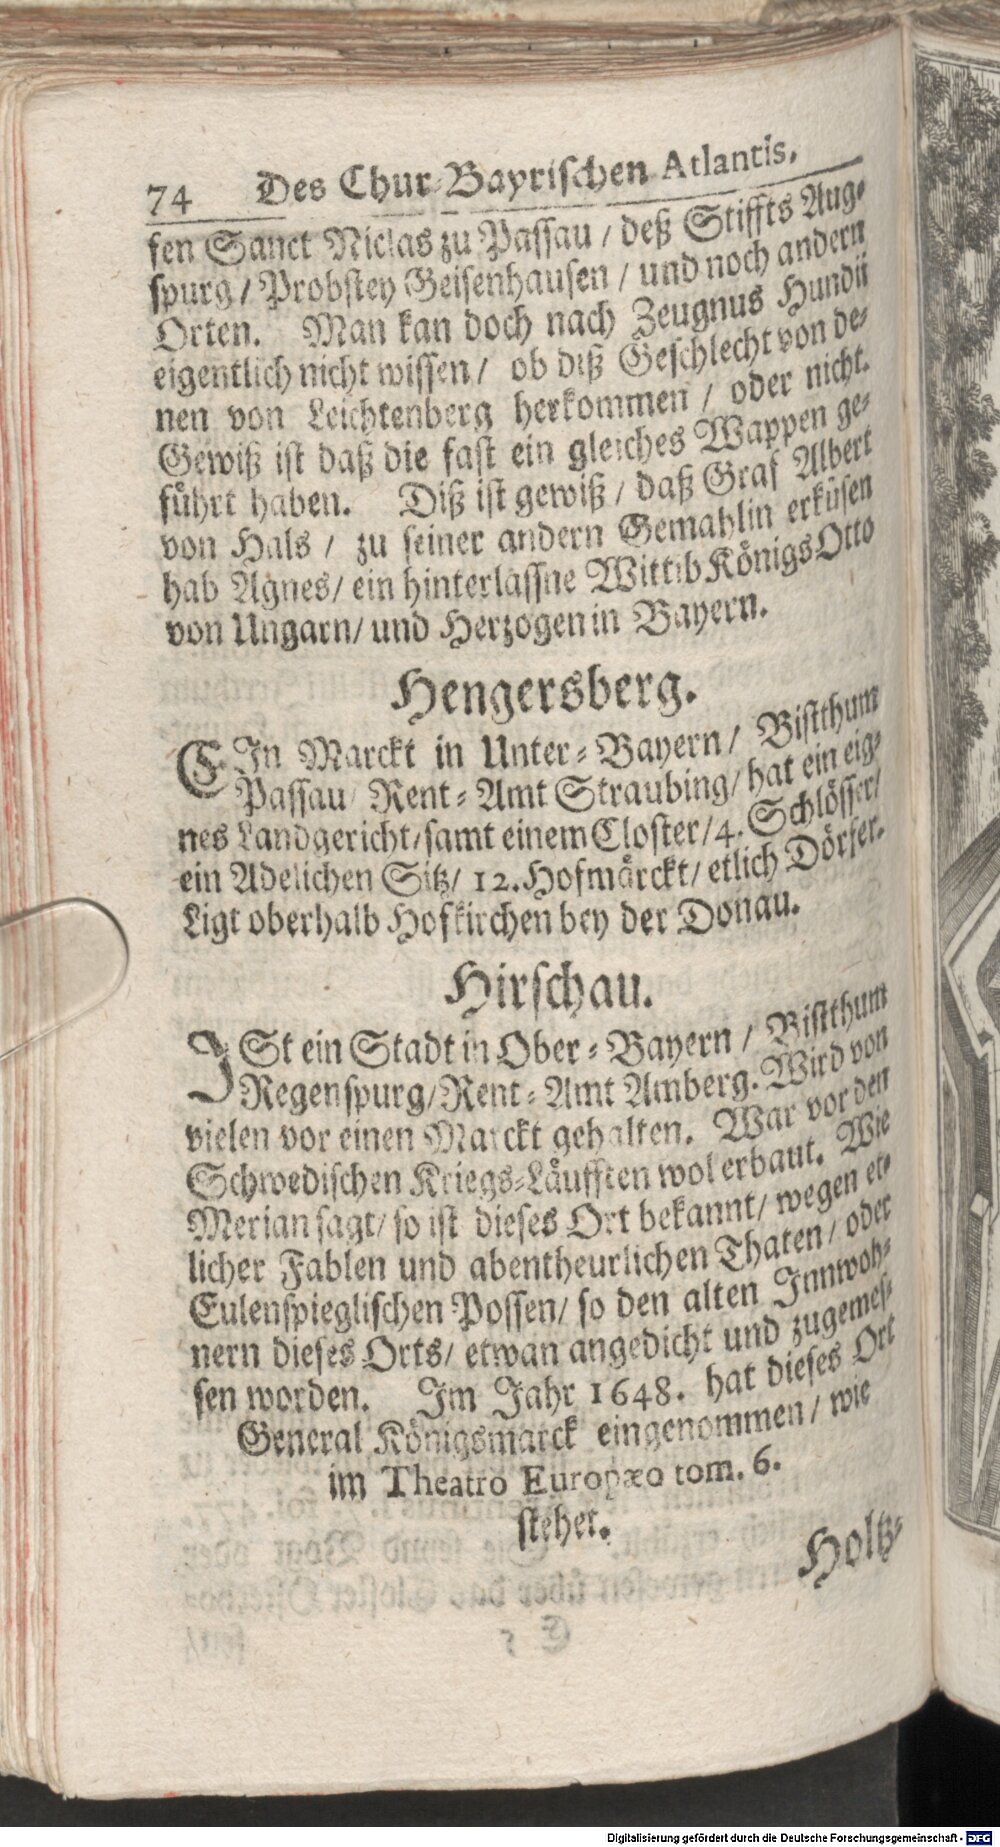 74 Des Chur-Bayrischen Atlantis.
sen Sanct Niclas zu Passau / deß Stiffts Aug-
spurg / Probstey Geisenhausen / und noch andern
Orten. Man kan doch nach Zeugnus Hundii
eigentlich nicht wissen / ob diß Geschlecht von de-
nen von Leichtenberg herkommen / oder nicht.
Gewiß ist daß die fast ein gleiches Wappen ge-
führt haben. Diß ist gewiß / daß Graf Albert
von Hals / zu seiner andern Gemahlin erküsen
hab Agnes / ein hinterlassne Wittib Königs Otto
von Ungarn / und Herzogen in Bayern.
Hengersberg.
EIn Marckt in Unter-Bayern / Bistthum
Passau / Rent-Amt Straubing / hat ein eig-
nes Landgericht / samt einem Closter / 4. Schlösser /
ein Adelichen Sitz / 12. Hofmärckt / etlich Dörfer.
Ligt oberhalb Hofkirchen bey der Donau.
Hirschau.
ISt ein Stadt in Ober-Bayern / Bistthum
Regenspurg / Rent-Amt Amberg. Wird von
vielen vor einen Marckt gehalten. War vor den
Schwedischen Kriegs-Läufften wol erbaut. Wie
Merian sagt / so ist dieses Ort bekannt / wegen et-
licher Fablen und abentheurlichen Thaten / oder
Eulenspieglischen Possen / so den alten Innwoh-
nern dieses Orts / etwan angedicht und zugemes-
sen worden. Im Jahr 1648. hat dieses Ort
General Königsmarck eingenommen / wie
im Theatro Europæo tom. 6.
stehet.
Holtz-
Digitalisierung gefördert durch die Deutsche Forschungsgemeinschaft - DFG